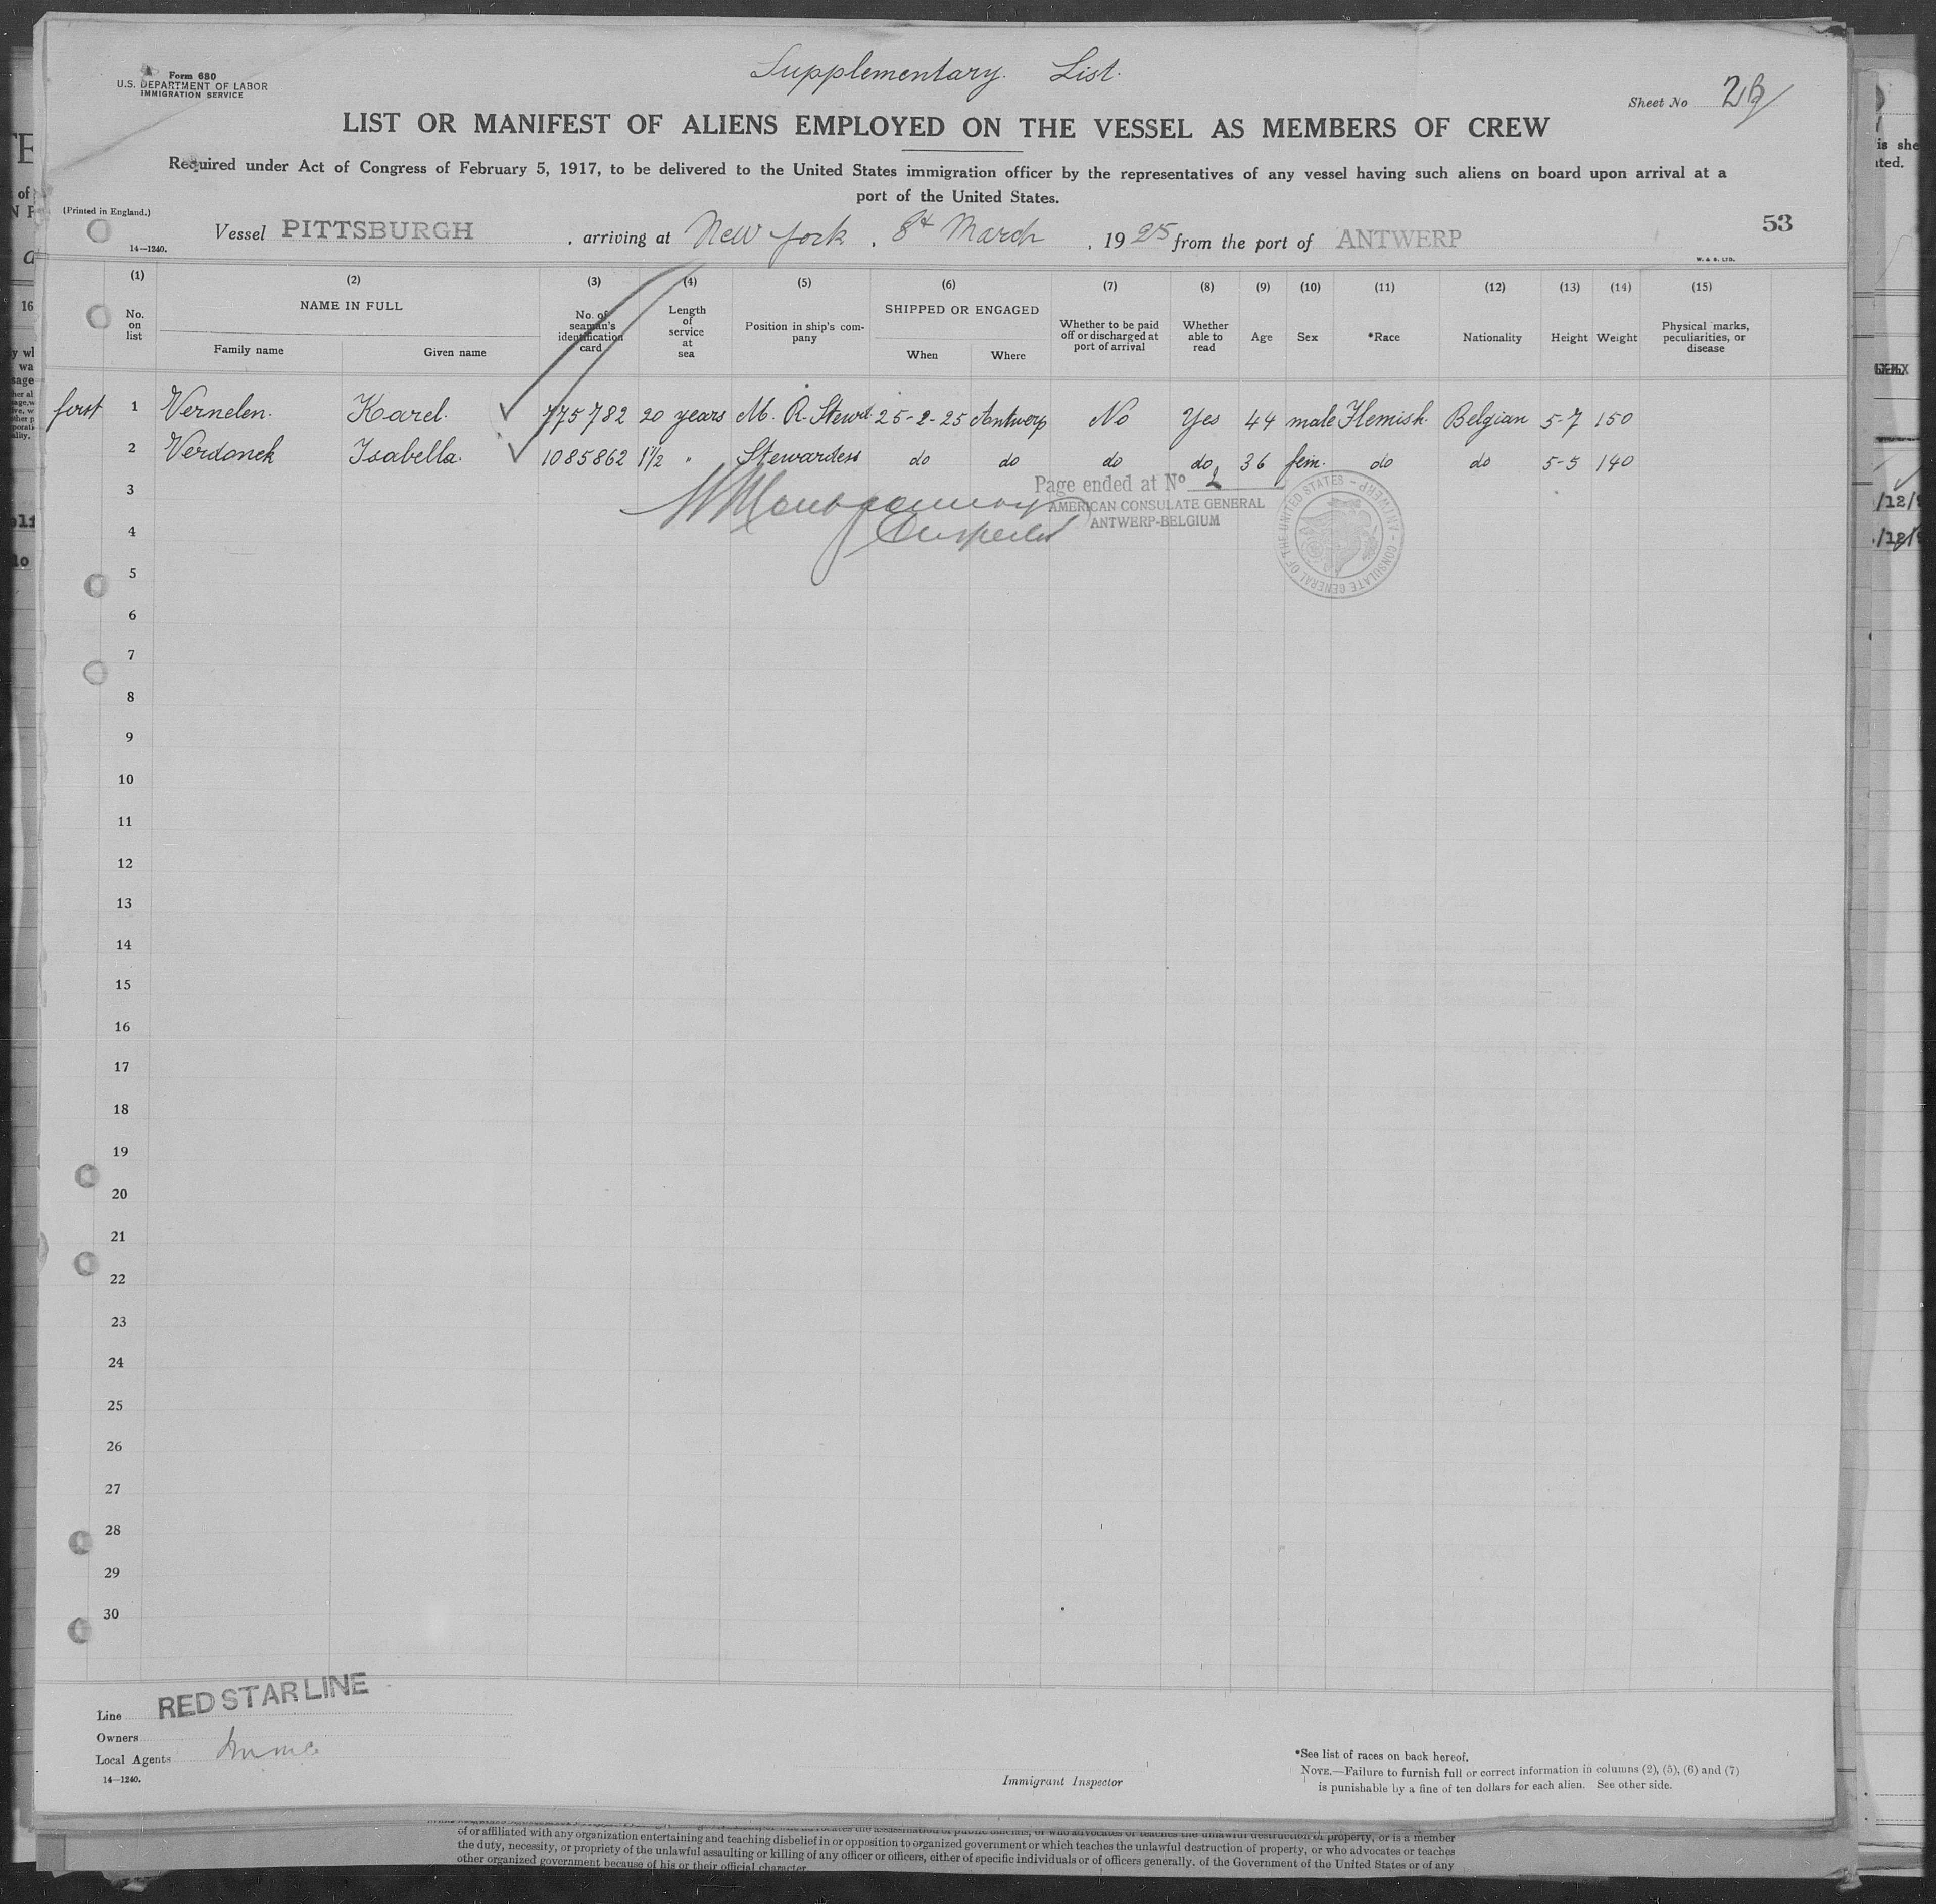 Supplementary List.
Form 680
U.S. DEPARTMENT OF LABOR
IMMIGRATION SERVICE
Sheet No
LIST OR MANIFEST OF ALIENS EMPLOYED ON THE VESSEL AS MEMBERS OF CREW
Required under Act of Congress of February 5, 1917, to be delivered to the United States immigration officer by the representatives of any vessel having such aliens on board upon arrival at a
port of the United States.
(Printed in England.)
53
Vessel PITTSBURGH, arriving at New York, 8th March, 1925 from the port of ANTWERP
14—1240.
W. & S. LTD.
(1) (2) (3) (4) (5) (6) (7) (8) (9) (10) (11) (12) (13) (14) (15)
No. on list
NAME IN FULL
Family name Given name
No. of seaman's identification card
Length of service at sea
Position in ship's company
SHIPPED OR ENGAGED
When Where
Whether to be paid off or discharged at port of arrival
Whether able to read
Age Sex *Race Nationality Height Weight
Physical marks, peculiarities, or disease
first 1 Vernelen. Karel. 775782 20 years M. R. Stewd 25-2-25 Antwerp No Yes 44 male Flemish. Belgian 5-7 150
2 Verdonck Isabella. 1085862 1½ " Stewardess do do do do 36 fem. do do 5-5 140
3
Page ended at No 2
AMERICAN CONSULATE GENERAL
ANTWERP-BELGIUM
CONSULATE GENERAL OF THE UNITED STATES - ANTWERP -
4
5
6
7
8
9
10
11
12
13
14
15
16
17
18
19
20
21
22
23
24
25
26
27
28
29
30
Line RED STAR LINE
Owners
Local Agents
14—1240.
Immigrant Inspector
*See list of races on back hereof.
NOTE.—Failure to furnish full or correct information in columns (2), (5), (6) and (7)
is punishable by a fine of ten dollars for each alien. See other side.
of or affiliated with any organization entertaining and teaching disbelief in or opposition to organized government or which teaches the unlawful destruction of property, or is a member
the duty, necessity, or propriety of the unlawful assaulting or killing of any officer or officers, either of specific individuals or of officers generally, of the Government of the United States or of any
other organized government because of his or their official character.